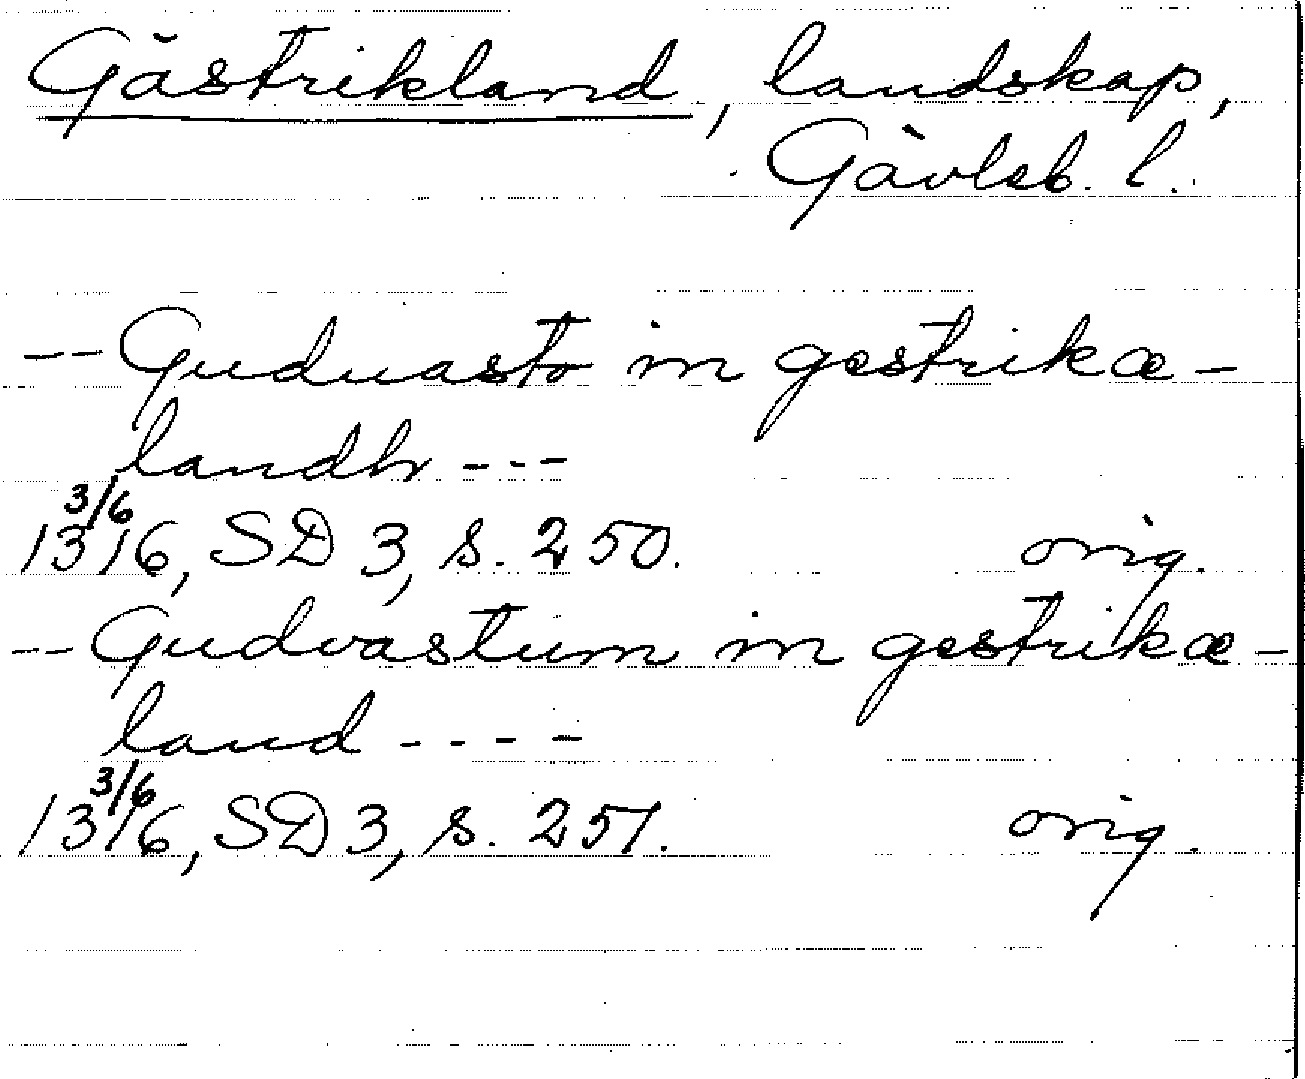 Gästrikland, landskap,
Gävleb. l.
-- Guduasto in gestrikæ-
landh ---
1316, 3/6 SD 3, s. 250. orig.
-- Gudvastum in gestrikæ-
land ----
1316, 3/6 SD 3, s. 251. orig.